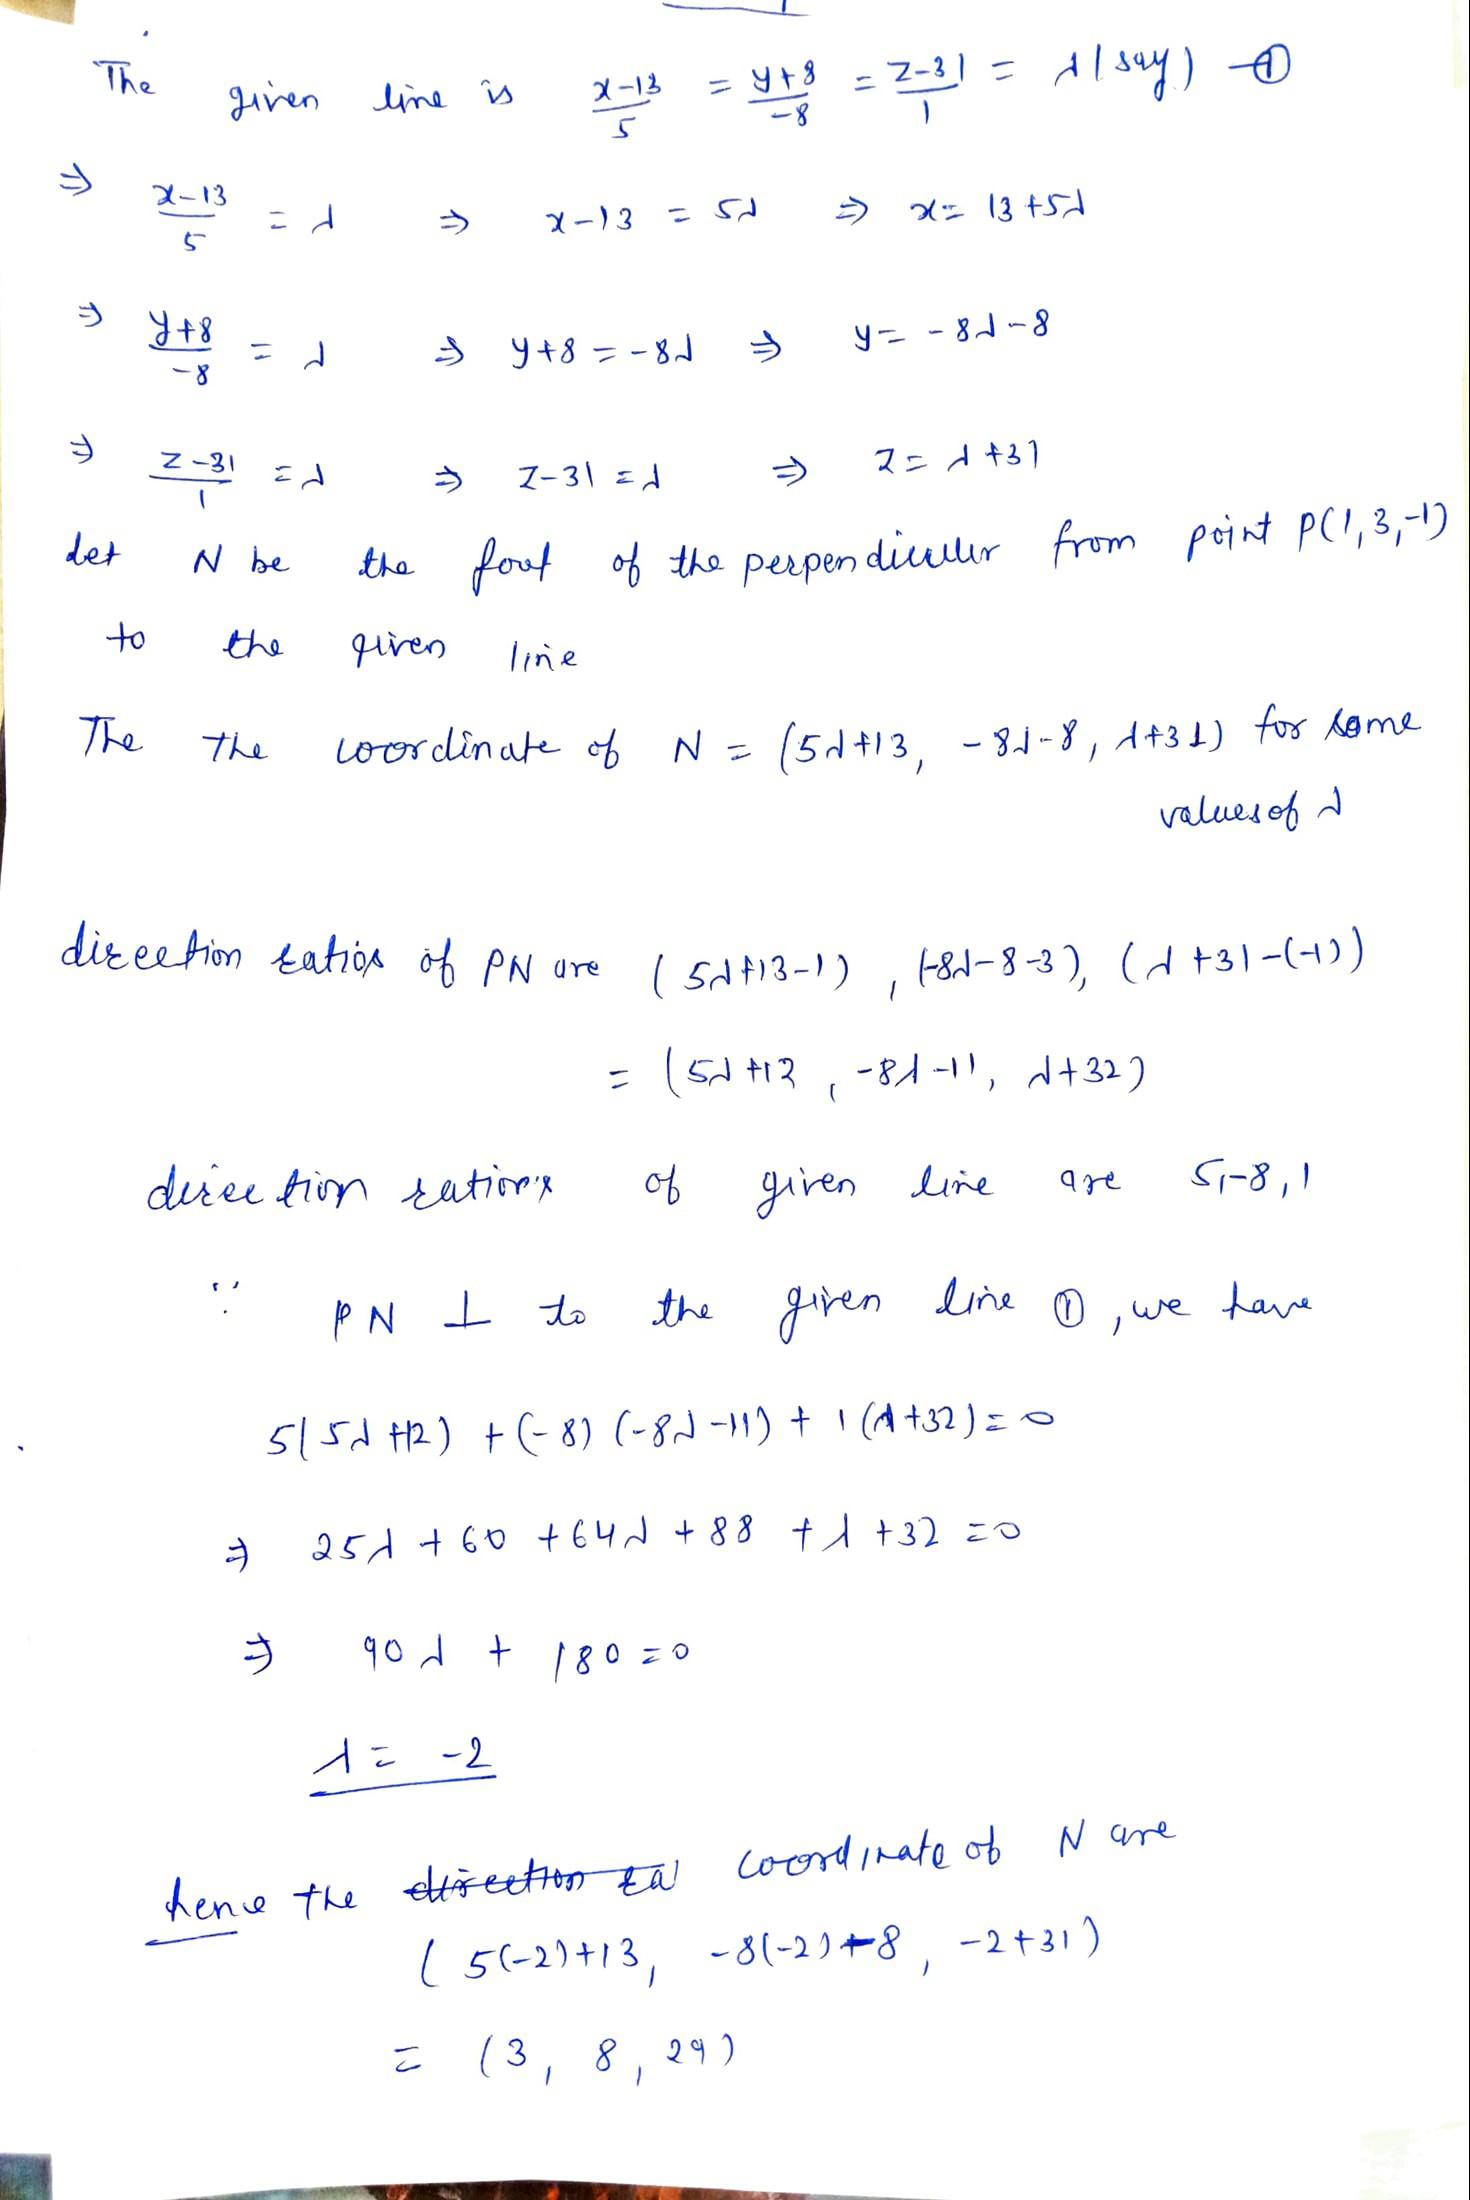 The given line is x-13/5 = y+8/-8 = z-31/1 = λ (say) -①
⇒ x-13/5 = λ ⇒ x-13 = 5λ ⇒ x= 13+5λ
⇒ y+8/-8 = λ ⇒ y+8 = -8λ ⇒ y= -8λ-8
⇒ z-31/1 = λ ⇒ z-31 = λ ⇒ z= λ+31
Let N be the foot of the perpendiculer from point P(1,3,-1)
to the given line
The the coordinate of N = (5λ+13, -8λ-8, λ+31) for some
values of λ
direction ratios of PN are (5λ+13-1), (-8λ-8-3), (λ+31-(-1))
= (5λ+12, -8λ-11, λ+32)
direction ration's of given line are 5,-8,1
∵ PN ⊥ to the given line ①, we have
5(5λ+12) + (-8) (-8λ-11) + 1(λ+32) = 0
⇒ 25λ + 60 + 64λ + 88 + λ + 32 = 0
⇒ 90λ + 180 = 0
λ = -2
hence the direction ra coordinate of N are
(5(-2)+13, -8(-2)-8, -2+31)
= (3, 8, 29)